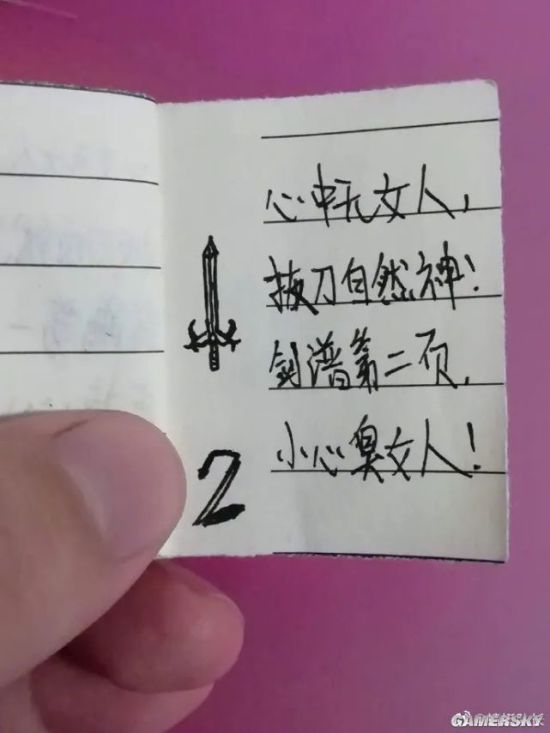 心中无女人,
拔刀自然神!
剑谱第二页,
小心臭女人!
2
GAMERSKY